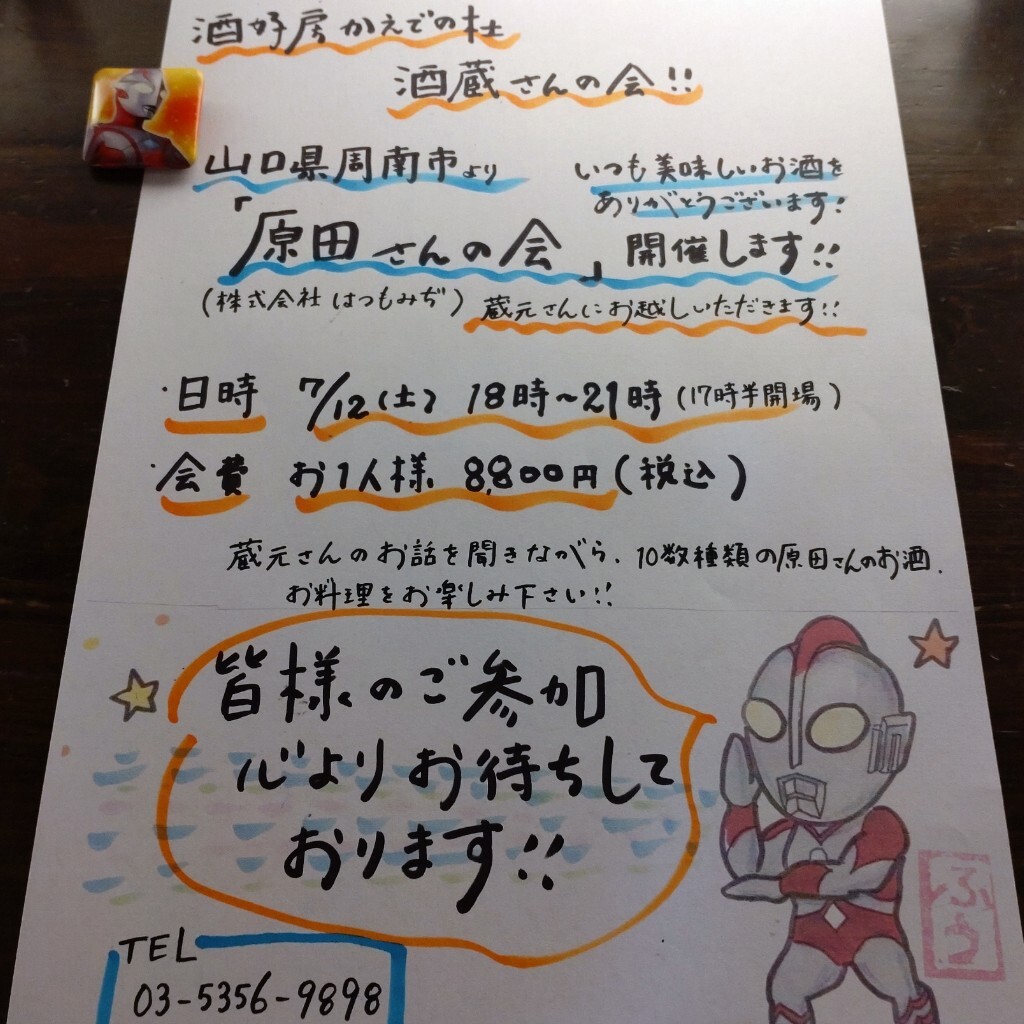 酒好房かえでの杜
酒蔵さんの会!!
山口県周南市より
いつも美味しいお酒を
ありがとうございます!
「原田さんの会」開催します!!
(株式会社はつもみぢ) 蔵元さんにお越しいただきます!!
・日時 7/12(土) 18時~21時(17時半開場)
・会費 お1人様 8,800円(税込)
蔵元さんのお話を聞きながら、10数種類の原田さんのお酒、
お料理をお楽しみ下さい!!
皆様のご参加
心よりお待ちして
おります!!
TEL
03-5356-9898